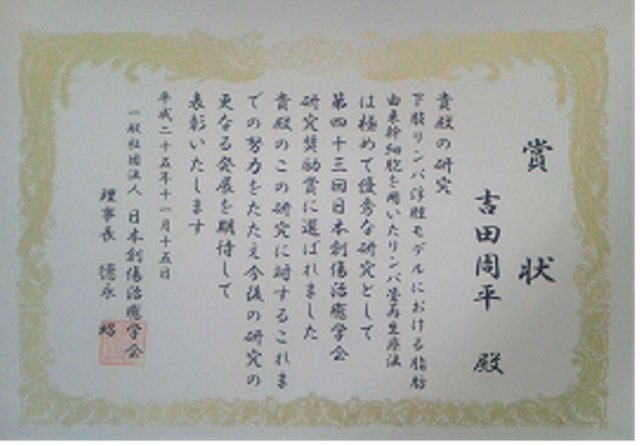 賞状
吉田周平 殿
貴殿の研究
下肢リンパ浮腫モデルにおける脂肪
由来幹細胞を用いたリンパ管再生療法
は極めて優秀な研究として
第四十三回日本創傷治癒学会
研究奨励賞に選ばれました
貴殿のこの研究に対するこれま
での努力をたたえ今後の研究の
更なる発展を期待して
表彰いたします
平成二十五年十一月十五日
一般社団法人 日本創傷治癒学会
理事長 徳永 昭